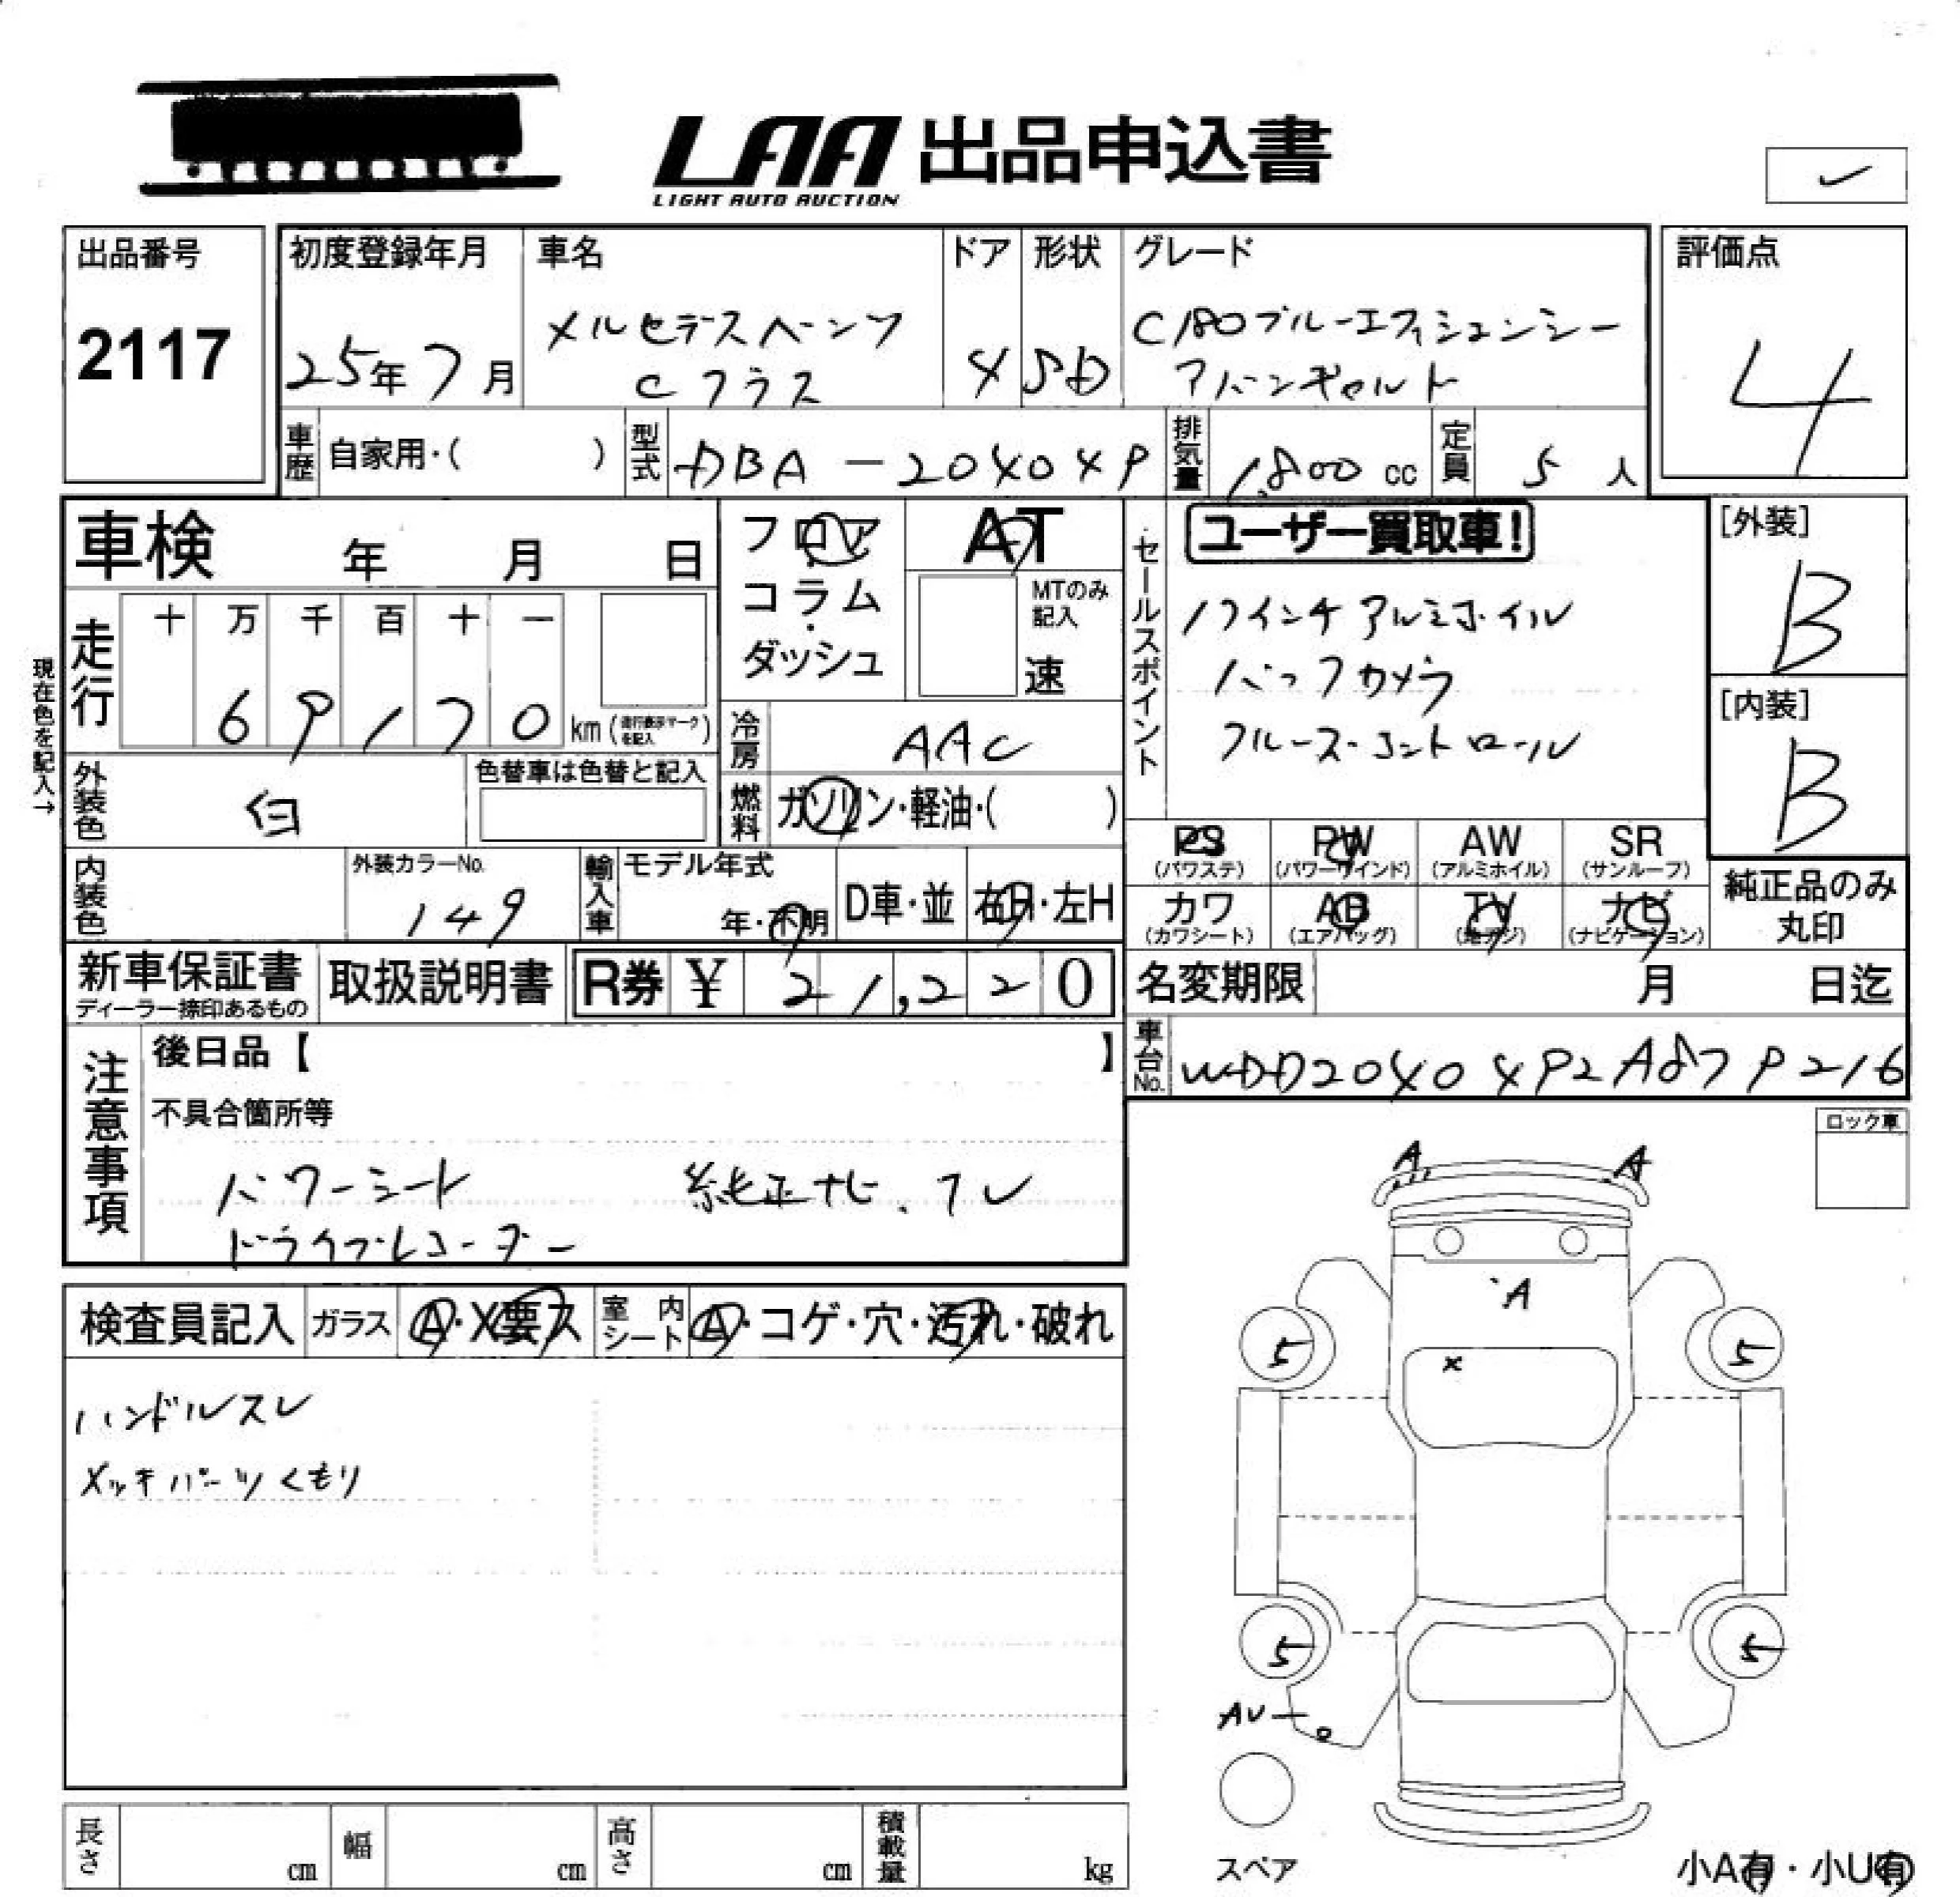 LAA 出品申込書
LIGHT AUTO AUCTION
✓
出品番号
2117
初度登録年月
25年7月
車名
メルセデスベンツ
Cクラス
ドア
4
形状
SD
グレード
C180ブルーエフィシェンシー
アバンギャルド
評価点
4
車歴
自家用・( )
型式
DBA-204049
排気量
1,800 cc
定員
5 人
車検 年 月 日
フロア
コラム
・
ダッシュ
AT
MTのみ
記入
速
セールスポイント
ユーザー買取車!
17インチアルミホイル
バックカメラ
クルーズ・コントロール
[外装]
B
[内装]
B
現在色を記入→
走行
十 万 千 百 十 一
69170 km (走行表示マークを記入)
冷房
AAC
燃料
ガソリン・軽油・( )
外装色
白
色替車は色替と記入
内装色
外装カラーNo.
149
輸入車
モデル年式
年・不明
D車・並
右H・左H
PS
(パワステ)
PW
(パワーウインド)
AW
(アルミホイル)
SR
(サンルーフ)
カワ
(カワシート)
AB
(エアバッグ)
TV
(地デジ)
ナビ
(ナビゲーション)
純正品のみ
丸印
新車保証書
ディーラー捺印あるもの
取扱説明書
R券 ¥ 21,220
名変期限 月 日迄
車台No.
WDD2040492A879216
注意事項
後日品【 】
不具合箇所等
パワーシート 純正ナビ、TV
ドライブレコーダー
ロック車
A A
A
×
5 5
5 5
AU
スペア
小A有・小U有
検査員記入
ガラス
A・X要ス
室内シート
A・コゲ・穴・汚れ・破れ
ハンドルスレ
メッキパーツくもり
長さ cm
幅 cm
高さ cm
積載量 kg